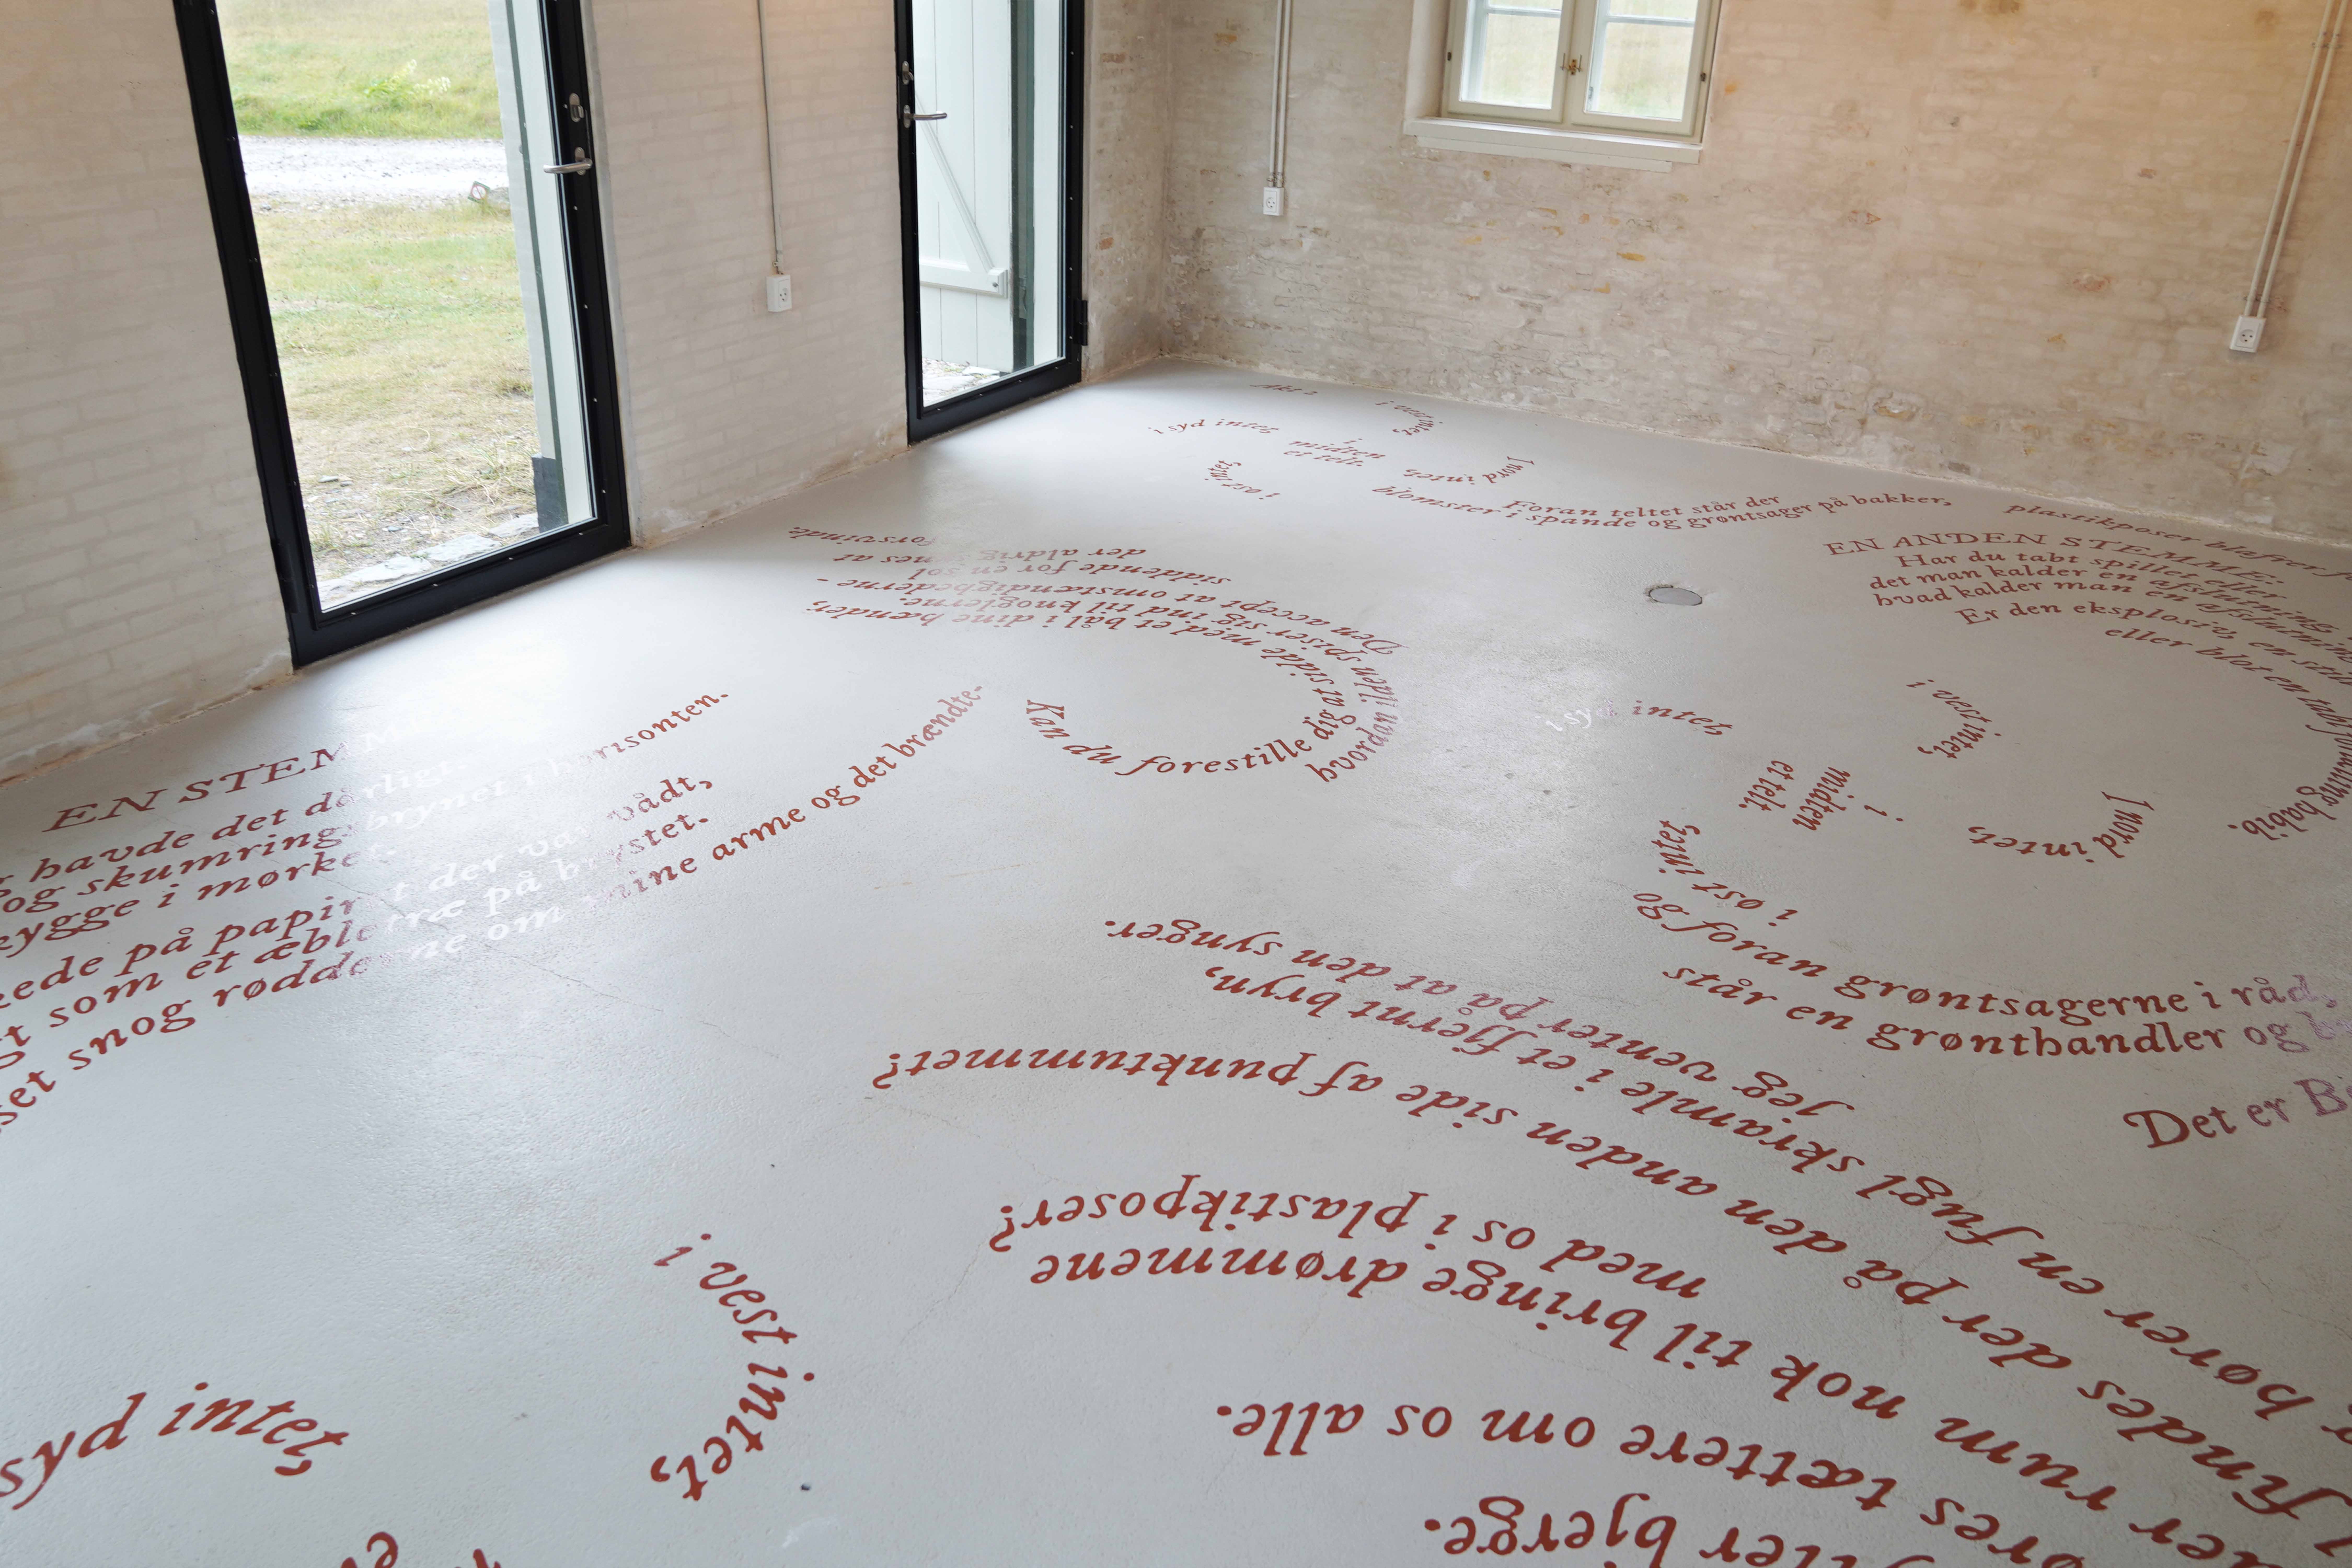 i vest intet,
i syd intet
i
midten
et telt.
I nord intet,
i øst intet
Foran teltet står der
blomster i spande og grøntsager på bakker,
plastikposer blafrer
EN ANDEN STEMME:
Har du tabt spillet eller
det man kalder en afslutning,
hvad kalder man en afslutning
Er den eksplosiv, en
eller blot en
habib.
Kan du forestille dig at sidde med et bål i dine hænder,
hvordan ilden spiser sig ind til knoglerne.
Den accept at omstændighederne -
siddende for en sol
der aldrig synes at
forsvinde.
EN STEMM
havde det dårligt
og skumringsbrynet i horisonten.
skygge i mørket.
på papiret der var vådt,
som et æbletræ på brystet.
snog rødderne om mine arme og det brændte-
i syd intet,
i vest intet,
i
midten
et telt.
I nord intet,
i øst intet
og foran grøntsagerne i råd,
står en grønthandler og
Det er
hører en fugl skramle i et fjernt bryn,
jeg venter på at den synger.
findes der på den anden side af punktummet?
rum nok til bringe drømmene
med os i plastikposer?
tættere om os alle.
bjerge.
syd intet,
i vest intet,